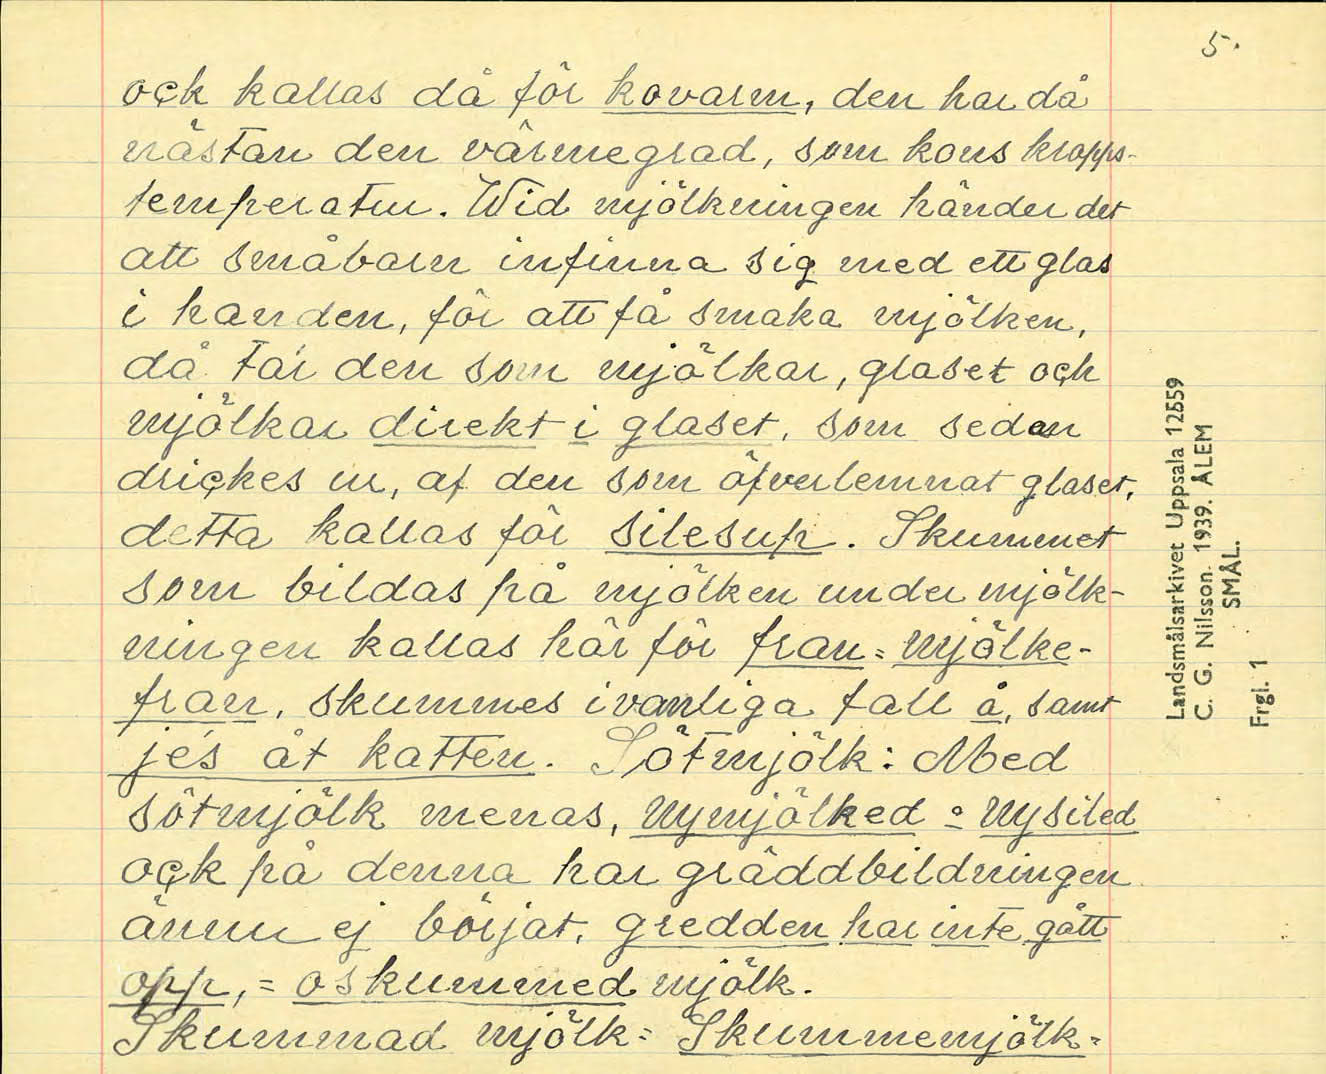 5.
ock kallas då för kovarm, den har då
nästan den värmegrad, som kons kropps-
temperatur. Wid mjölkningen händer det
att småbarn infinna sig med ett glas
i handen, för att få smaka mjölken,
då tár den som mjölkar, glaset och
mjölkar direkt i glaset, som sedan
drickes ur, af den som öfverlemnat glaset,
detta kallas för silesup. Skummet
som bildas på mjölken under mjölk-
ningen kallas här för fran = mjölke-
fran, skummes i vanliga fall å, samt
jés åt katten. Sötmjölk: Med
sötmjölk menas, nymjölked = nysiled
ock på denna har gräddbildningen
ännu ej börjat, gredden har inte gått
opp, = oskummed mjölk.
Skummad mjölk = Skummemjölk =
Landsmålsarkivet Uppsala 12559
C. G. Nilsson. 1939. ÅLEM
SMÅL.
Frgl. 1